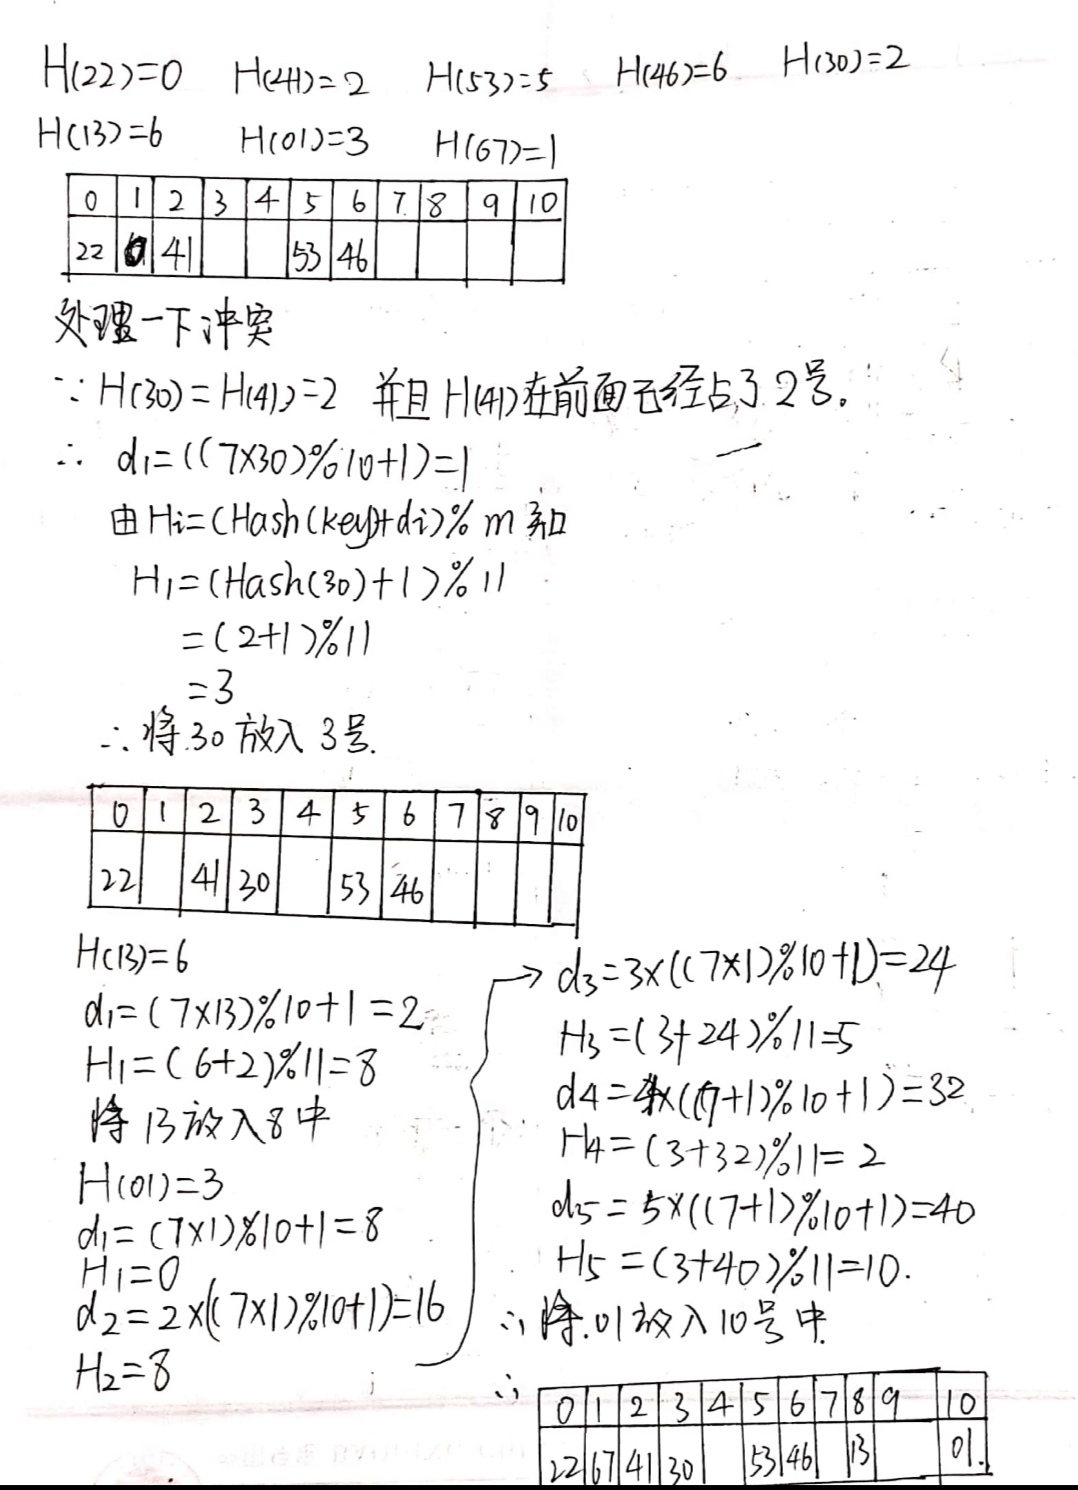 H(22)=0 H(41)=2 H(53)=5 H(46)=6 H(30)=2
H(13)=6 H(01)=3 H(67)=1
0 1 2 3 4 5 6 7 8 9 10
22 41 53 46
处理一下冲突
∵ H(30)=H(41)=2 并且H(41)在前面已经占了2号.
∴ d1=((7×30)%10+1)=1
由Hi=(Hash(key)+di)% m 知
H1=(Hash(30)+1)%11
=(2+1)%11
=3
∴将30放入3号.
0 1 2 3 4 5 6 7 8 9 10
22 41 30 53 46
H(13)=6
d1=(7×13)%10+1=2
H1=(6+2)%11=8
将13放入8中
H(01)=3
d1=(7×1)%10+1=8
H1=0
d2=2×((7×1)%10+1)=16
H2=8
→ d3=3×((7×1)%10+1)=24
H3=(3+24)%11=5
d4=4×((7+1)%10+1)=32
H4=(3+32)%11=2
d5=5×((7+1)%10+1)=40
H5=(3+40)%11=10.
∴将01放入10号中.
∴
0 1 2 3 4 5 6 7 8 9 10
22 67 41 30 53 46 13 01.